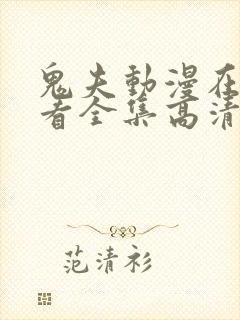 鬼夫動漫在
看全集高清
范清衫